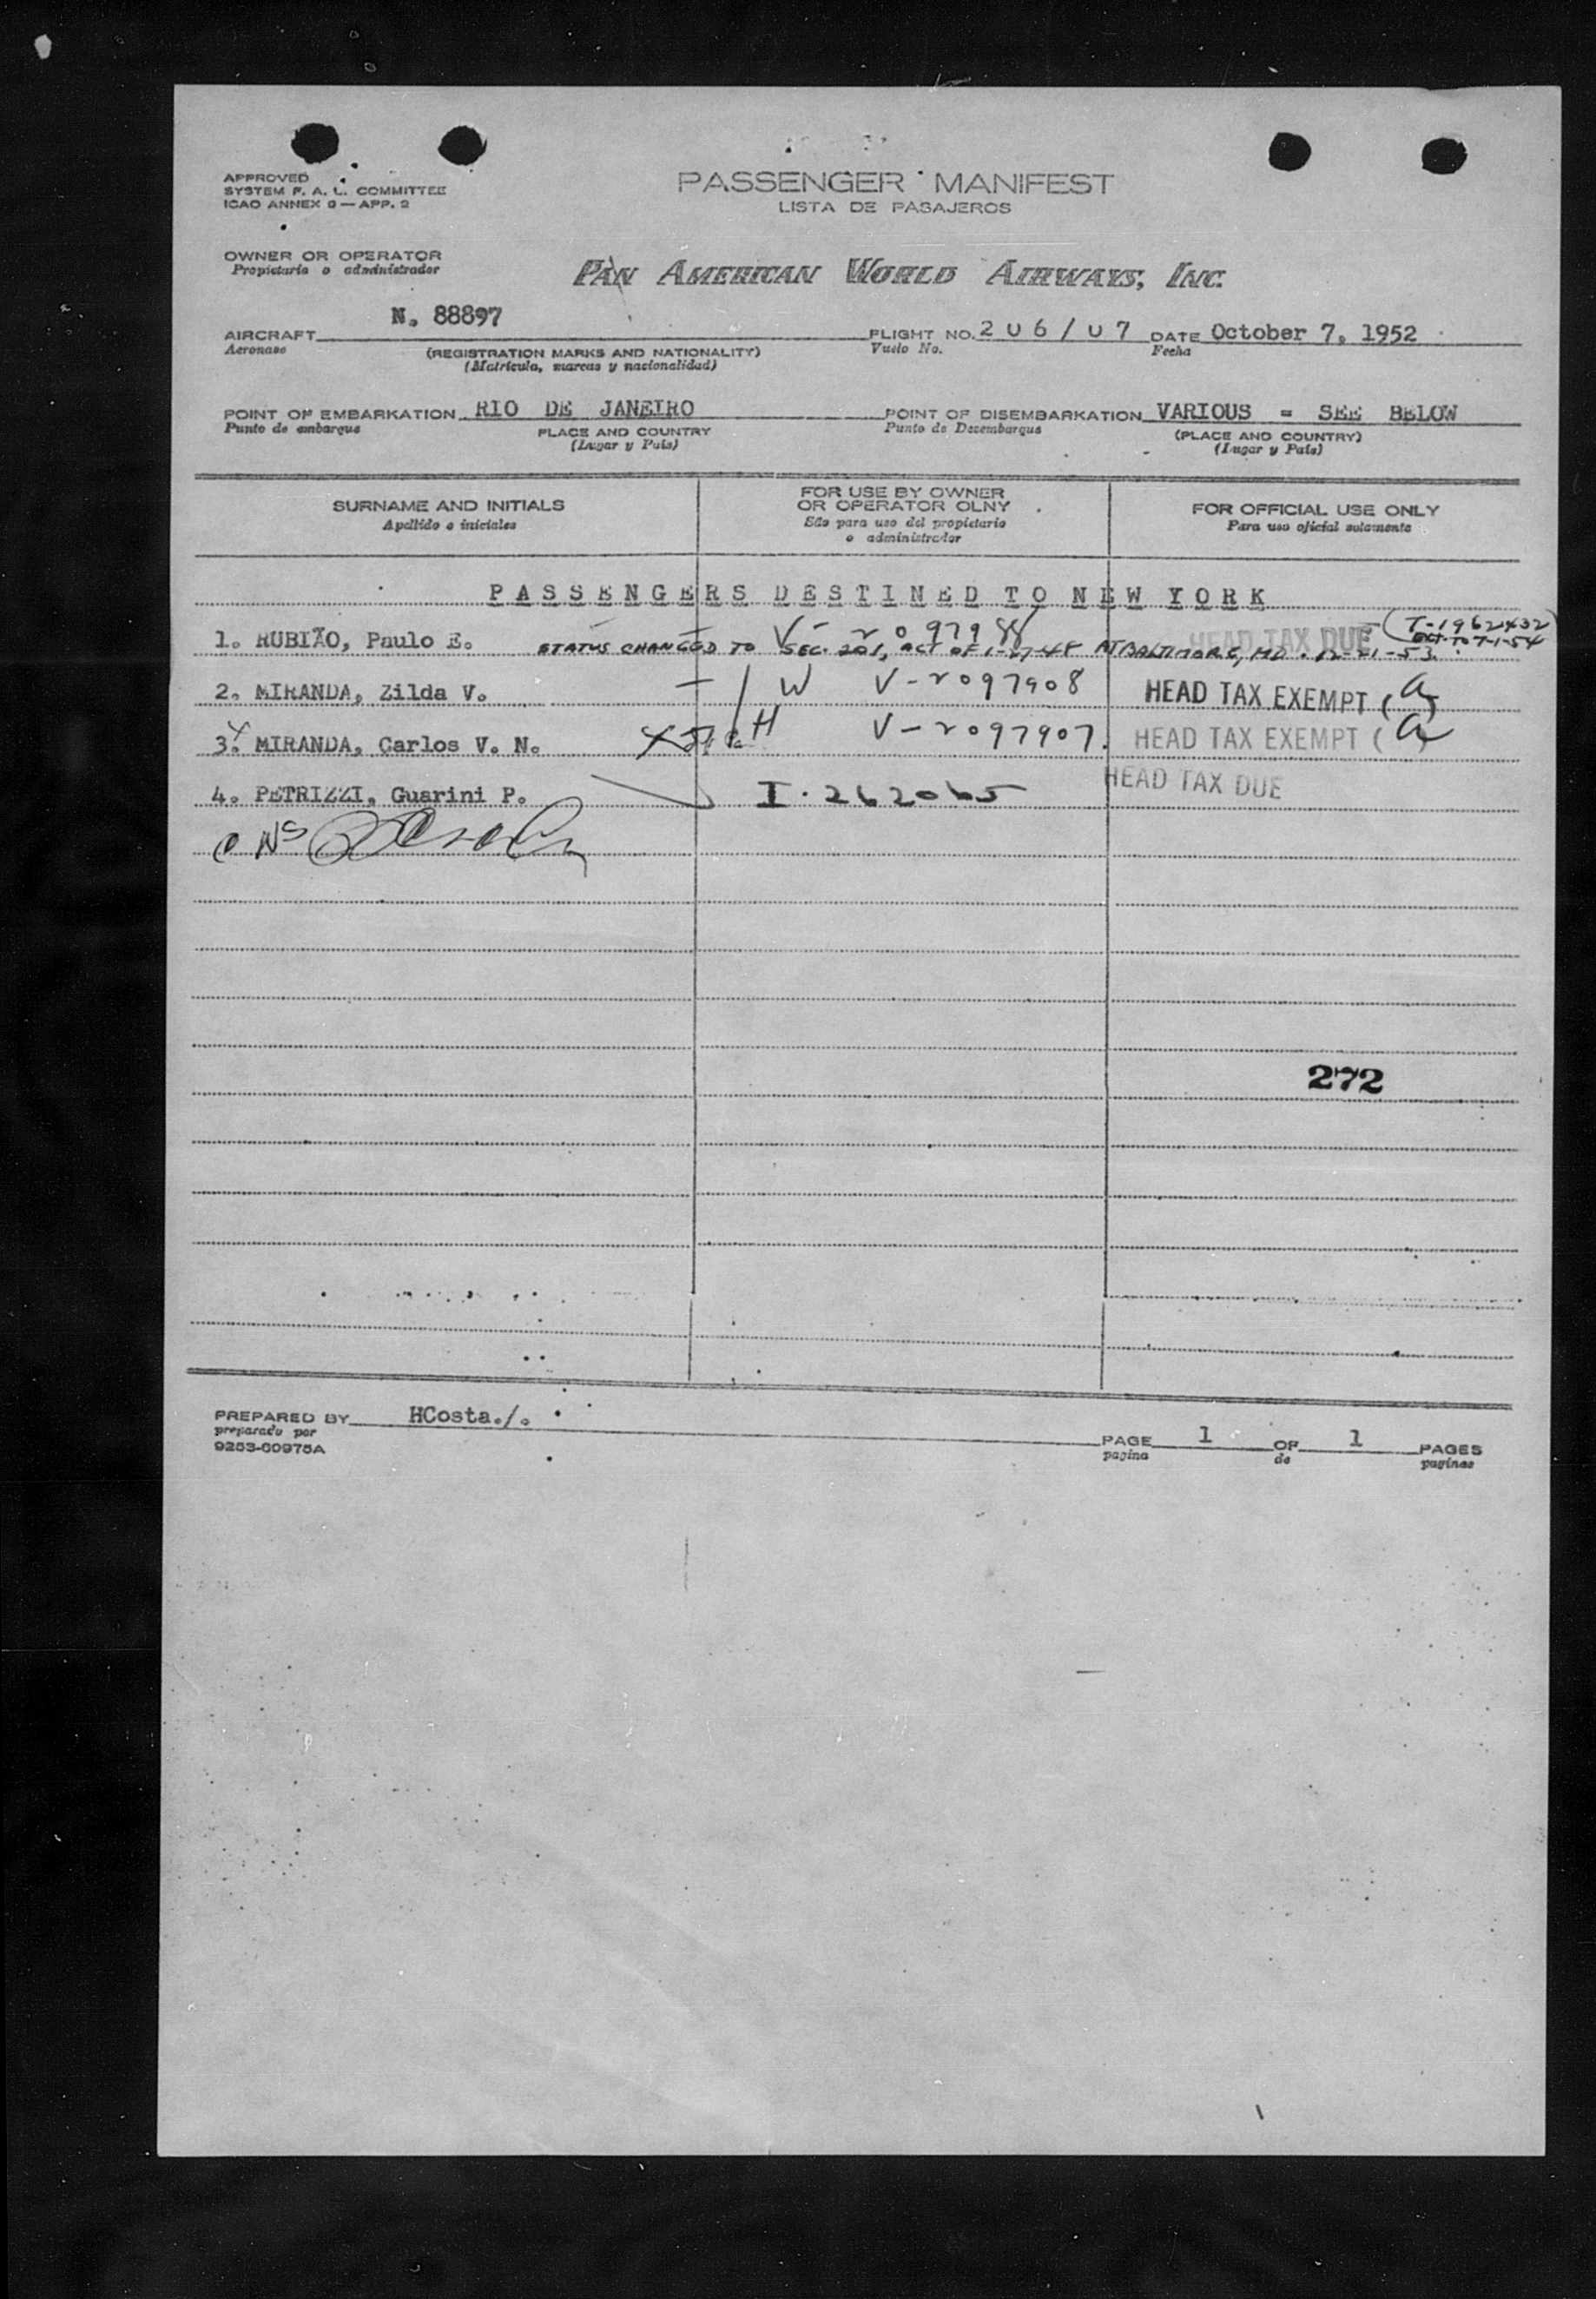 APPROVED
SYSTEM F. A. L. COMMITTEE
ICAO ANNEX 9 — APP. 2
PASSENGER MANIFEST
LISTA DE PASAJEROS
OWNER OR OPERATOR
Propietario o administrador
PAN AMERICAN WORLD AIRWAYS, INC.
AIRCRAFT N. 88897
Aeronave
(REGISTRATION MARKS AND NATIONALITY)
(Matrícula, marcas y nacionalidad)
FLIGHT NO. 206/07 DATE October 7, 1952
Vuelo No. Fecha
POINT OF EMBARKATION RIO DE JANEIRO
Punto de embarque
PLACE AND COUNTRY
(Lugar y País)
POINT OF DISEMBARKATION VARIOUS = SEE BELOW
Punto de Desembarque
(PLACE AND COUNTRY)
(Lugar y País)
SURNAME AND INITIALS
Apellido e iniciales
FOR USE BY OWNER
OR OPERATOR OLNY
Sólo para uso del propietario
o administrador
FOR OFFICIAL USE ONLY
Para uso oficial solamente
PASSENGERS DESTINED TO NEW YORK
1. RUBIÃO, Paulo E. V-2097988 HEAD TAX DUE (T-1962432
STATUS CHANGED TO SEC. 201, ACT OF 1-27-48 AT BALTIMORE, MD. 12-21-53. EXT. TO 7-1-54
2. MIRANDA, Zilda V. W V-2097908 HEAD TAX EXEMPT (a)
3. MIRANDA, Carlos V. N. H V-2097907. HEAD TAX EXEMPT (a)
4. PETRIZZI, Guarini P. I-262065 HEAD TAX DUE
272
PREPARED BY HCosta./.
preparado por
9253-60975A
PAGE 1 OF 1 PAGES
pagina de paginas